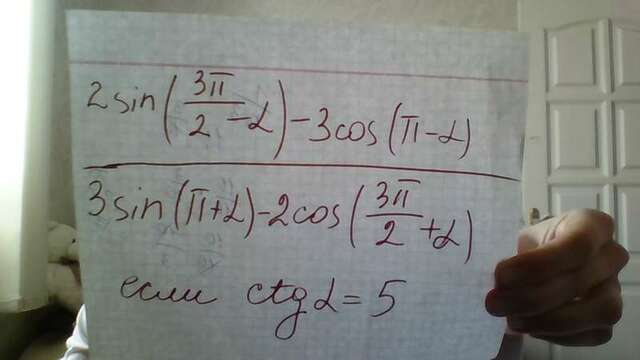 2sin(3π/2 - α) - 3cos(π - α)
3sin(π + α) - 2cos(3π/2 + α)
если ctg α = 5